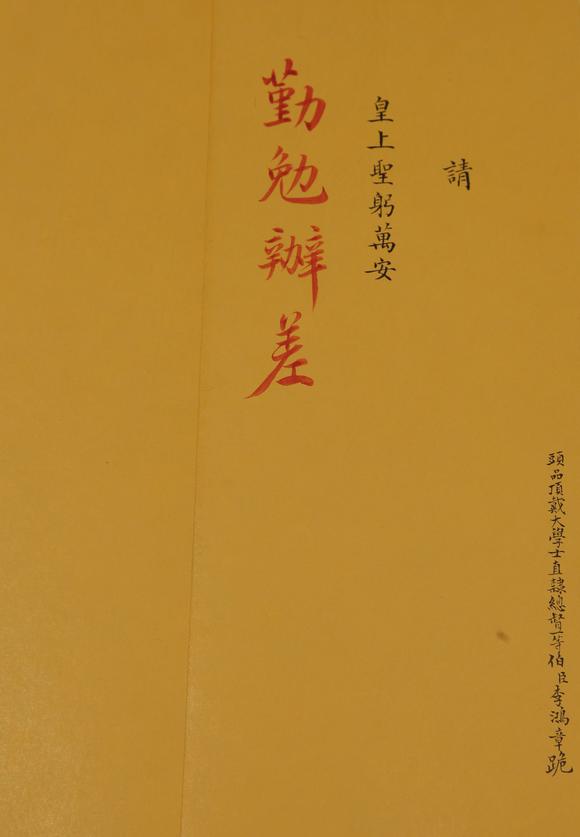 頭品頂戴大學士直隸總督一等伯臣李鴻章跪
請
皇上聖躬萬安
勤勉辦差